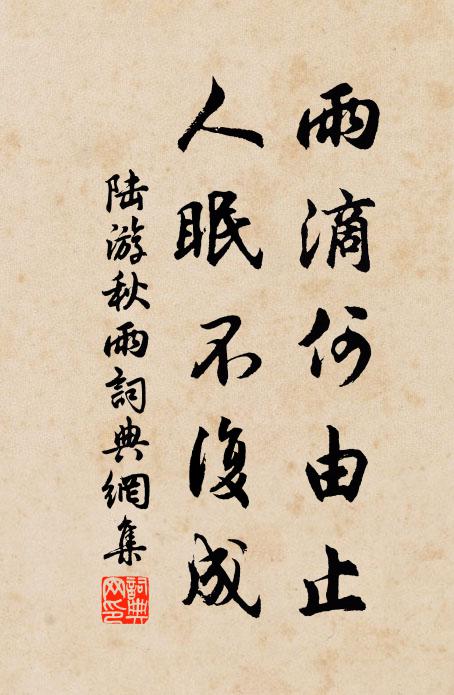 雨滴何由止
人眠不復成
陸游秋雨詞典網集
詞典
网印